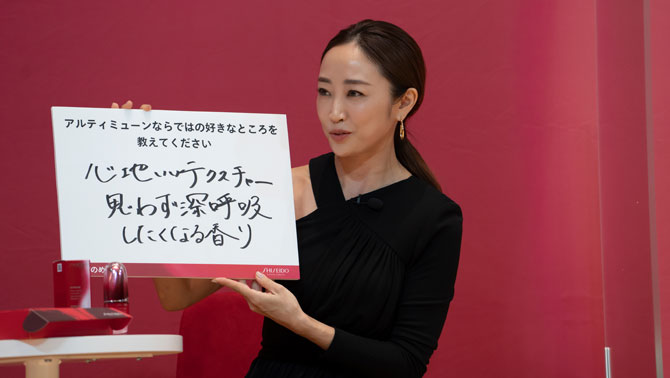 アルティミューンならではの好きなところを
教えてください
心地いいテクスチャー
思わず深呼吸
したくなる香り
のめ
SHISEIDO